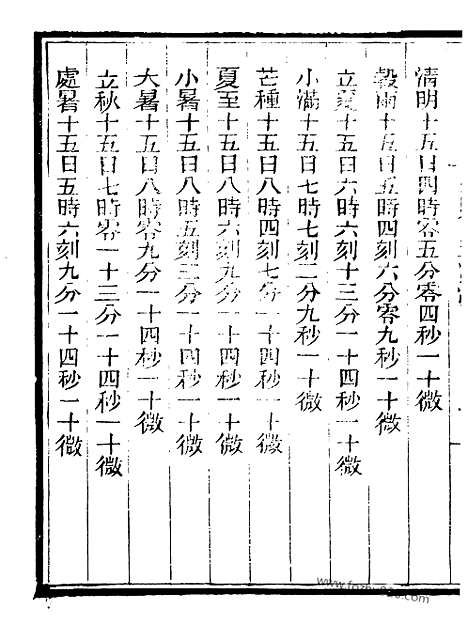 清明十五日四時零五分零四秒一十微
穀雨十五日五時四刻六分零九秒一十微
立夏十五日六時六刻十三分一十四秒一十微
小滿十五日七時七刻二分九秒一十微
芒種十五日八時四刻七分一十四秒一十微
夏至十五日八時六刻九分一十四秒一十微
小暑十五日八時五刻三分一十四秒一十微
大暑十五日八時零九分一十四秒一十微
立秋十五日七時零一十三分一十四秒一十微
處暑十五日五時六刻九分一十四秒一十微